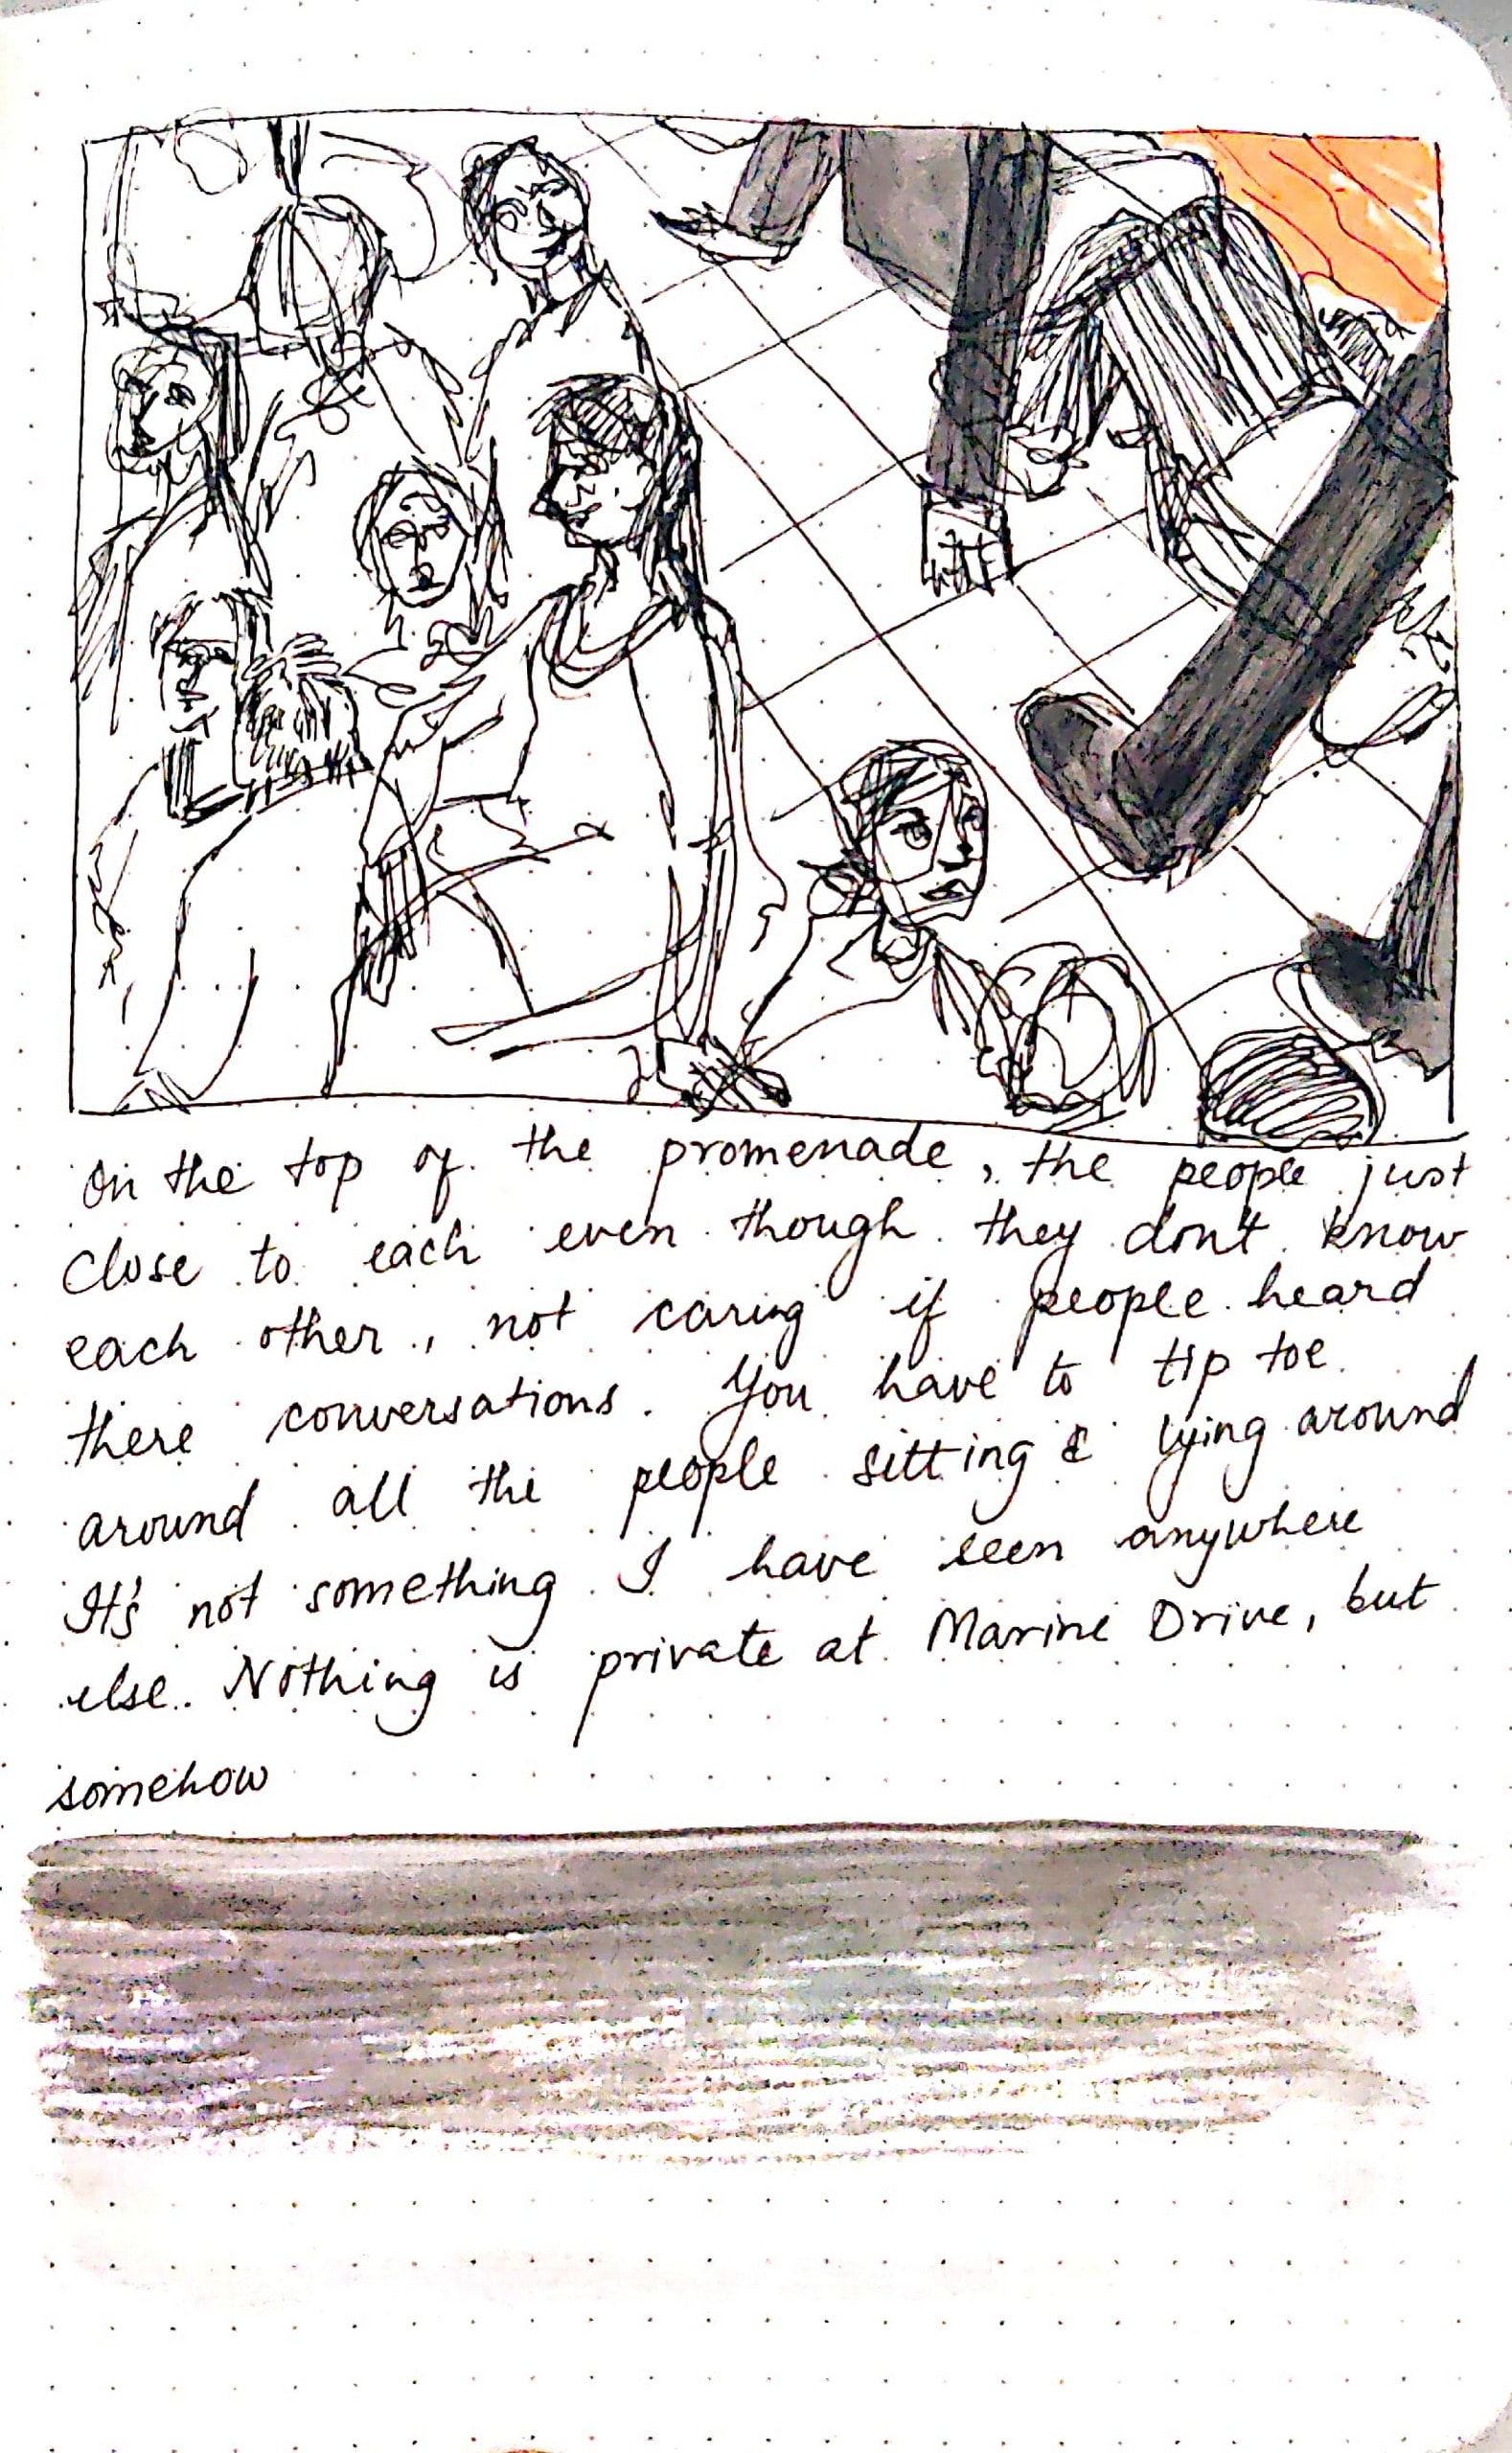 On the top of the promenade, the people just
close to each even though they dont know
each other, not caring if people heard
there conversations. You have to tip toe
around all the people sitting & lying around
It's not something I have seen anywhere
else. Nothing is private at Marine Drive, but
somehow